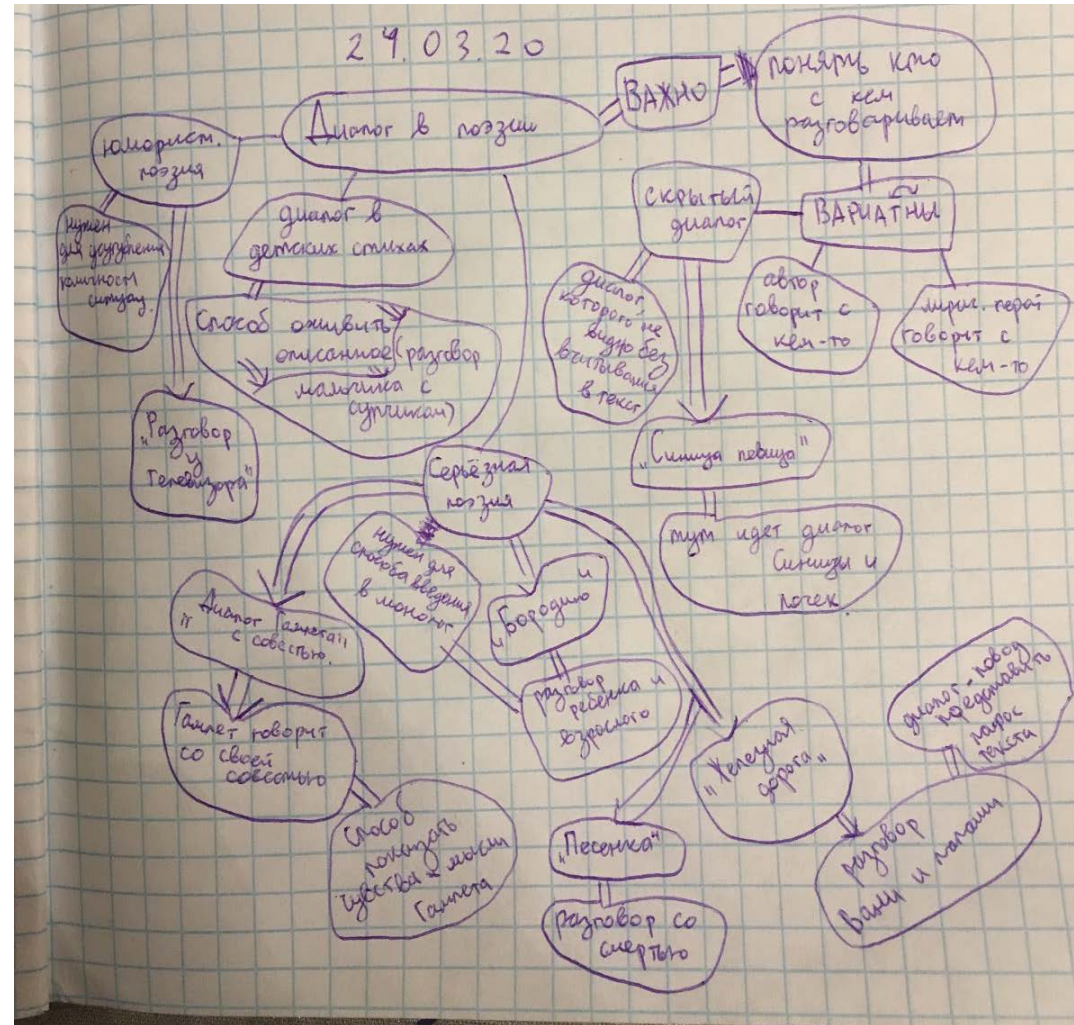 24.03.20
Диалог в поэзии
ВАЖНО
понять кто
с кем
разговаривает
юморист.
поэзия
нужен
для усугубления
комичности
ситуац.
"Разговор
у
телевизора"
диалог в
детских стихах
Способ оживить
описанное (разговор
мальчика с
супчиком)
скрытый
диалог
ВАРИАТНЫ
диалог,
которого не
видно без
вчитывания
в текст
автор
говорит с
кем-то
лирич. герой
говорит с
кем-то
"Синица певица"
тут идет диалог
Синицы и
почек.
Серьёзная
поэзия
"Диалог Гамлета"
с совестью.
Гамлет говорит
со своей
совестью
способ
показать
чувства и мысли
Гамлета
нужен для
способа введения
в монолог
"Бородино"
разговор
ребенка и
взрослого
"Песенка"
разговор со
смертью
"Железная
дорога"
разговор
Вани и папаши
диалог - повод
представить
пафос
текста